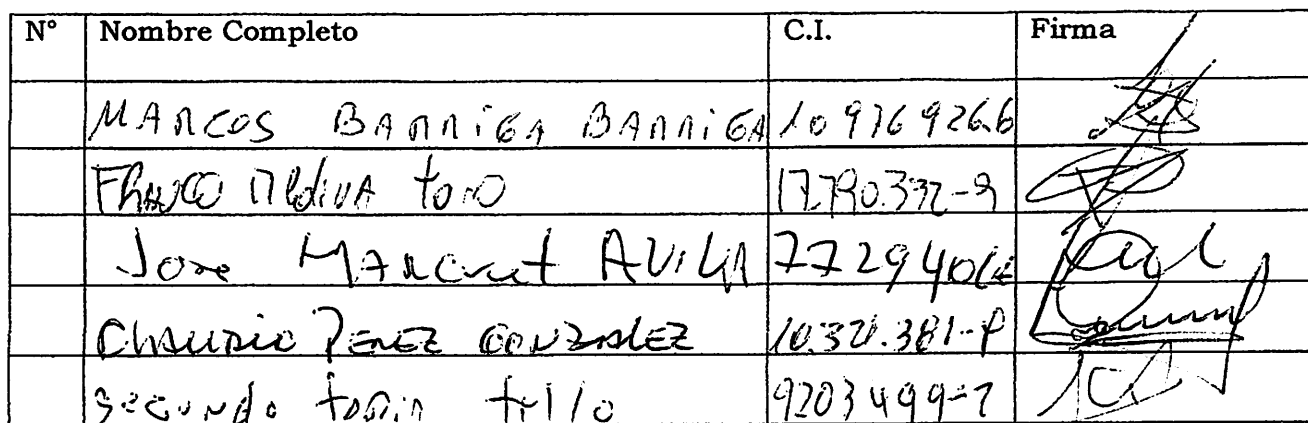 N° Nombre Completo C.I. Firma
MARCOS BARRIGA BARRIGA 10976926.6
FRANCO MEdiNA toro 17.790.372-9
Jose AVILA
CLAUDIO PEREZ GONZALEZ 10.321.381-
Segundo tello 9203499-7